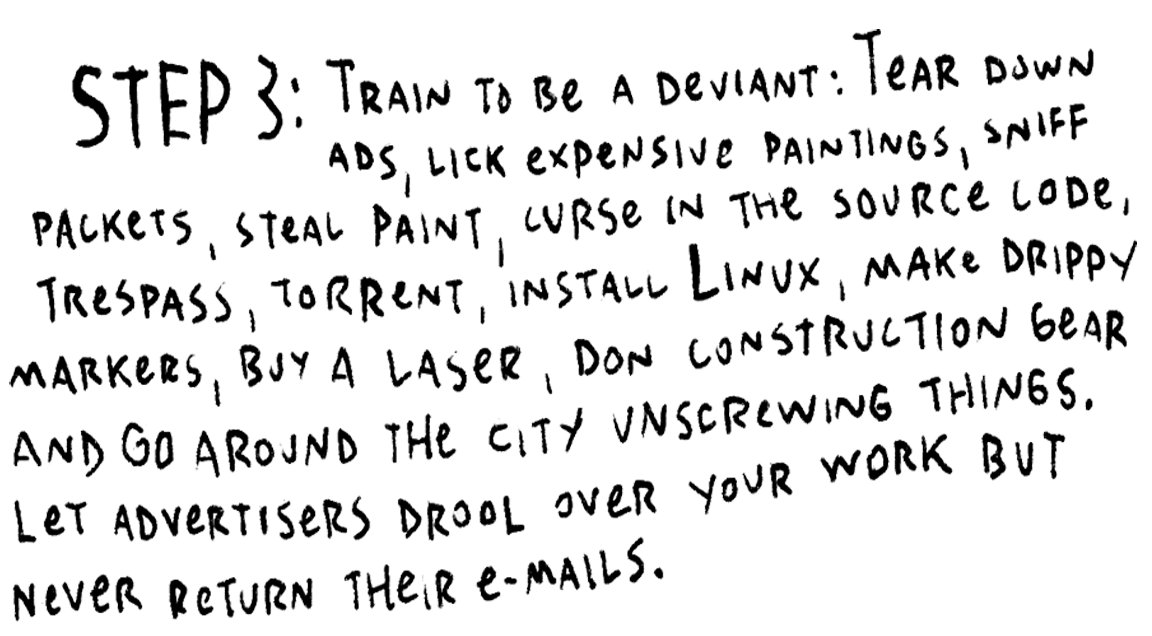 STEP 3: TRAIN TO BE A DEVIANT: TEAR DOWN
ADS, LICK EXPENSIVE PAINTINGS, SNIFF
PACKETS, STEAL PAINT, CURSE IN THE SOURCE CODE,
TRESPASS, TORRENT, INSTALL LINUX, MAKE DRIPPY
MARKERS, BUY A LASER, DON CONSTRUCTION GEAR
AND GO AROUND THE CITY UNSCREWING THINGS.
LET ADVERTISERS DROOL OVER YOUR WORK BUT
NEVER RETURN THEIR E-MAILS.